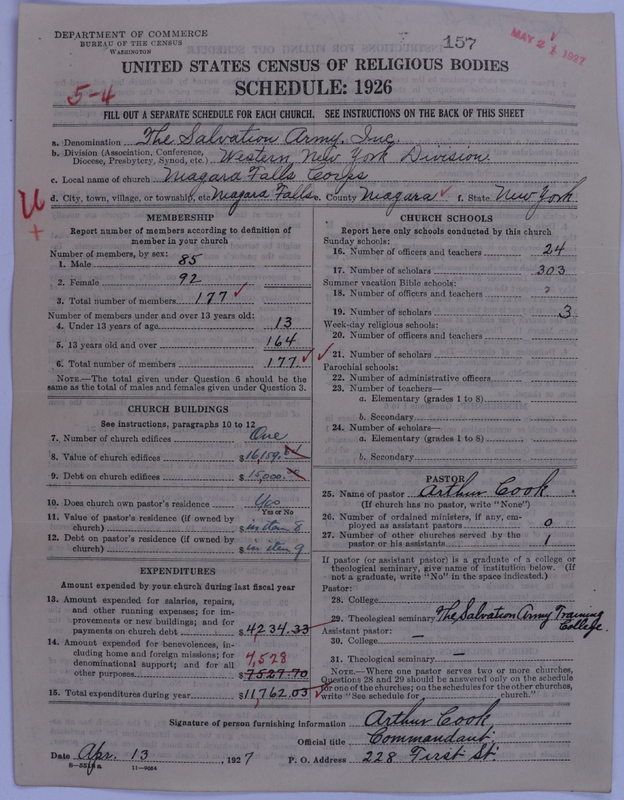 DEPARTMENT OF COMMERCE
BUREAU OF THE CENSUS
WASHINGTON
157
MAY 2 1927
UNITED STATES CENSUS OF RELIGIOUS BODIES
SCHEDULE: 1926
5-4
FILL OUT A SEPARATE SCHEDULE FOR EACH CHURCH. SEE INSTRUCTIONS ON THE BACK OF THIS SHEET
a. Denomination The Salvation Army, Inc.
b. Division (Association, Conference, Diocese, Presbytery, Synod, etc.) Western New York Division.
c. Local name of church Niagara Falls Corps
d. City, town, village, or township, etc Niagara Falls e. County Niagara f. State New York
MEMBERSHIP
Report number of members according to definition of
member in your church
Number of members, by sex:
1. Male 85
2. Female 92
3. Total number of members 177
Number of members under and over 13 years old:
4. Under 13 years of age 13
5. 13 years old and over 164
6. Total number of members 177
NOTE.—The total given under Question 6 should be the
same as the total of males and females given under Question 3.
CHURCH BUILDINGS
See instructions, paragraphs 10 to 12
7. Number of church edifices One
8. Value of church edifices $ 16,159.
9. Debt on church edifices $ 15,000.00
10. Does church own pastor's residence Yes
Yes or No
11. Value of pastor's residence (if owned by
church) $ in item 8
12. Debt on pastor's residence (if owned by
church) $ in item 9
EXPENDITURES
Amount expended by your church during last fiscal year
13. Amount expended for salaries, repairs,
and other running expenses; for im-
provements or new buildings; and for
payments on church debt $ 4234.33
14. Amount expended for benevolences, in-
cluding home and foreign missions; for
denominational support; and for all
other purposes 7,528 $ 7527.70
15. Total expenditures during year $ 11,762.03
CHURCH SCHOOLS
Report here only schools conducted by this church
Sunday schools:
16. Number of officers and teachers 24
17. Number of scholars 303
Summer vacation Bible schools:
18. Number of officers and teachers ?
19. Number of scholars 3
Week-day religious schools:
20. Number of officers and teachers
21. Number of scholars
Parochial schools:
22. Number of administrative officers
23. Number of teachers—
a. Elementary (grades 1 to 8)
b. Secondary
24. Number of scholars—
a. Elementary (grades 1 to 8)
b. Secondary
PASTOR
25. Name of pastor Arthur Cook
(If church has no pastor, write "None")
26. Number of ordained ministers, if any, em-
ployed as assistant pastors 0
27. Number of other churches served by the
pastor or his assistants 1
If pastor (or assistant pastor) is a graduate of a college or
theological seminary, give name of institution below. (If
not a graduate, write "No" in the space indicated.)
Pastor:
28. College
29. Theological seminary The Salvation Army Training College.
Assistant pastor:
30. College —
31. Theological seminary —
NOTE.—Where one pastor serves two or more churches,
Questions 28 and 29 should be answered only on the schedule
for one of the churches; on the schedules for the other churches,
write "See schedule for church."
Signature of person furnishing information Arthur Cook
Official title Commandant
Date Apr. 13, 1927 P. O. Address 228 First St.
11—9684